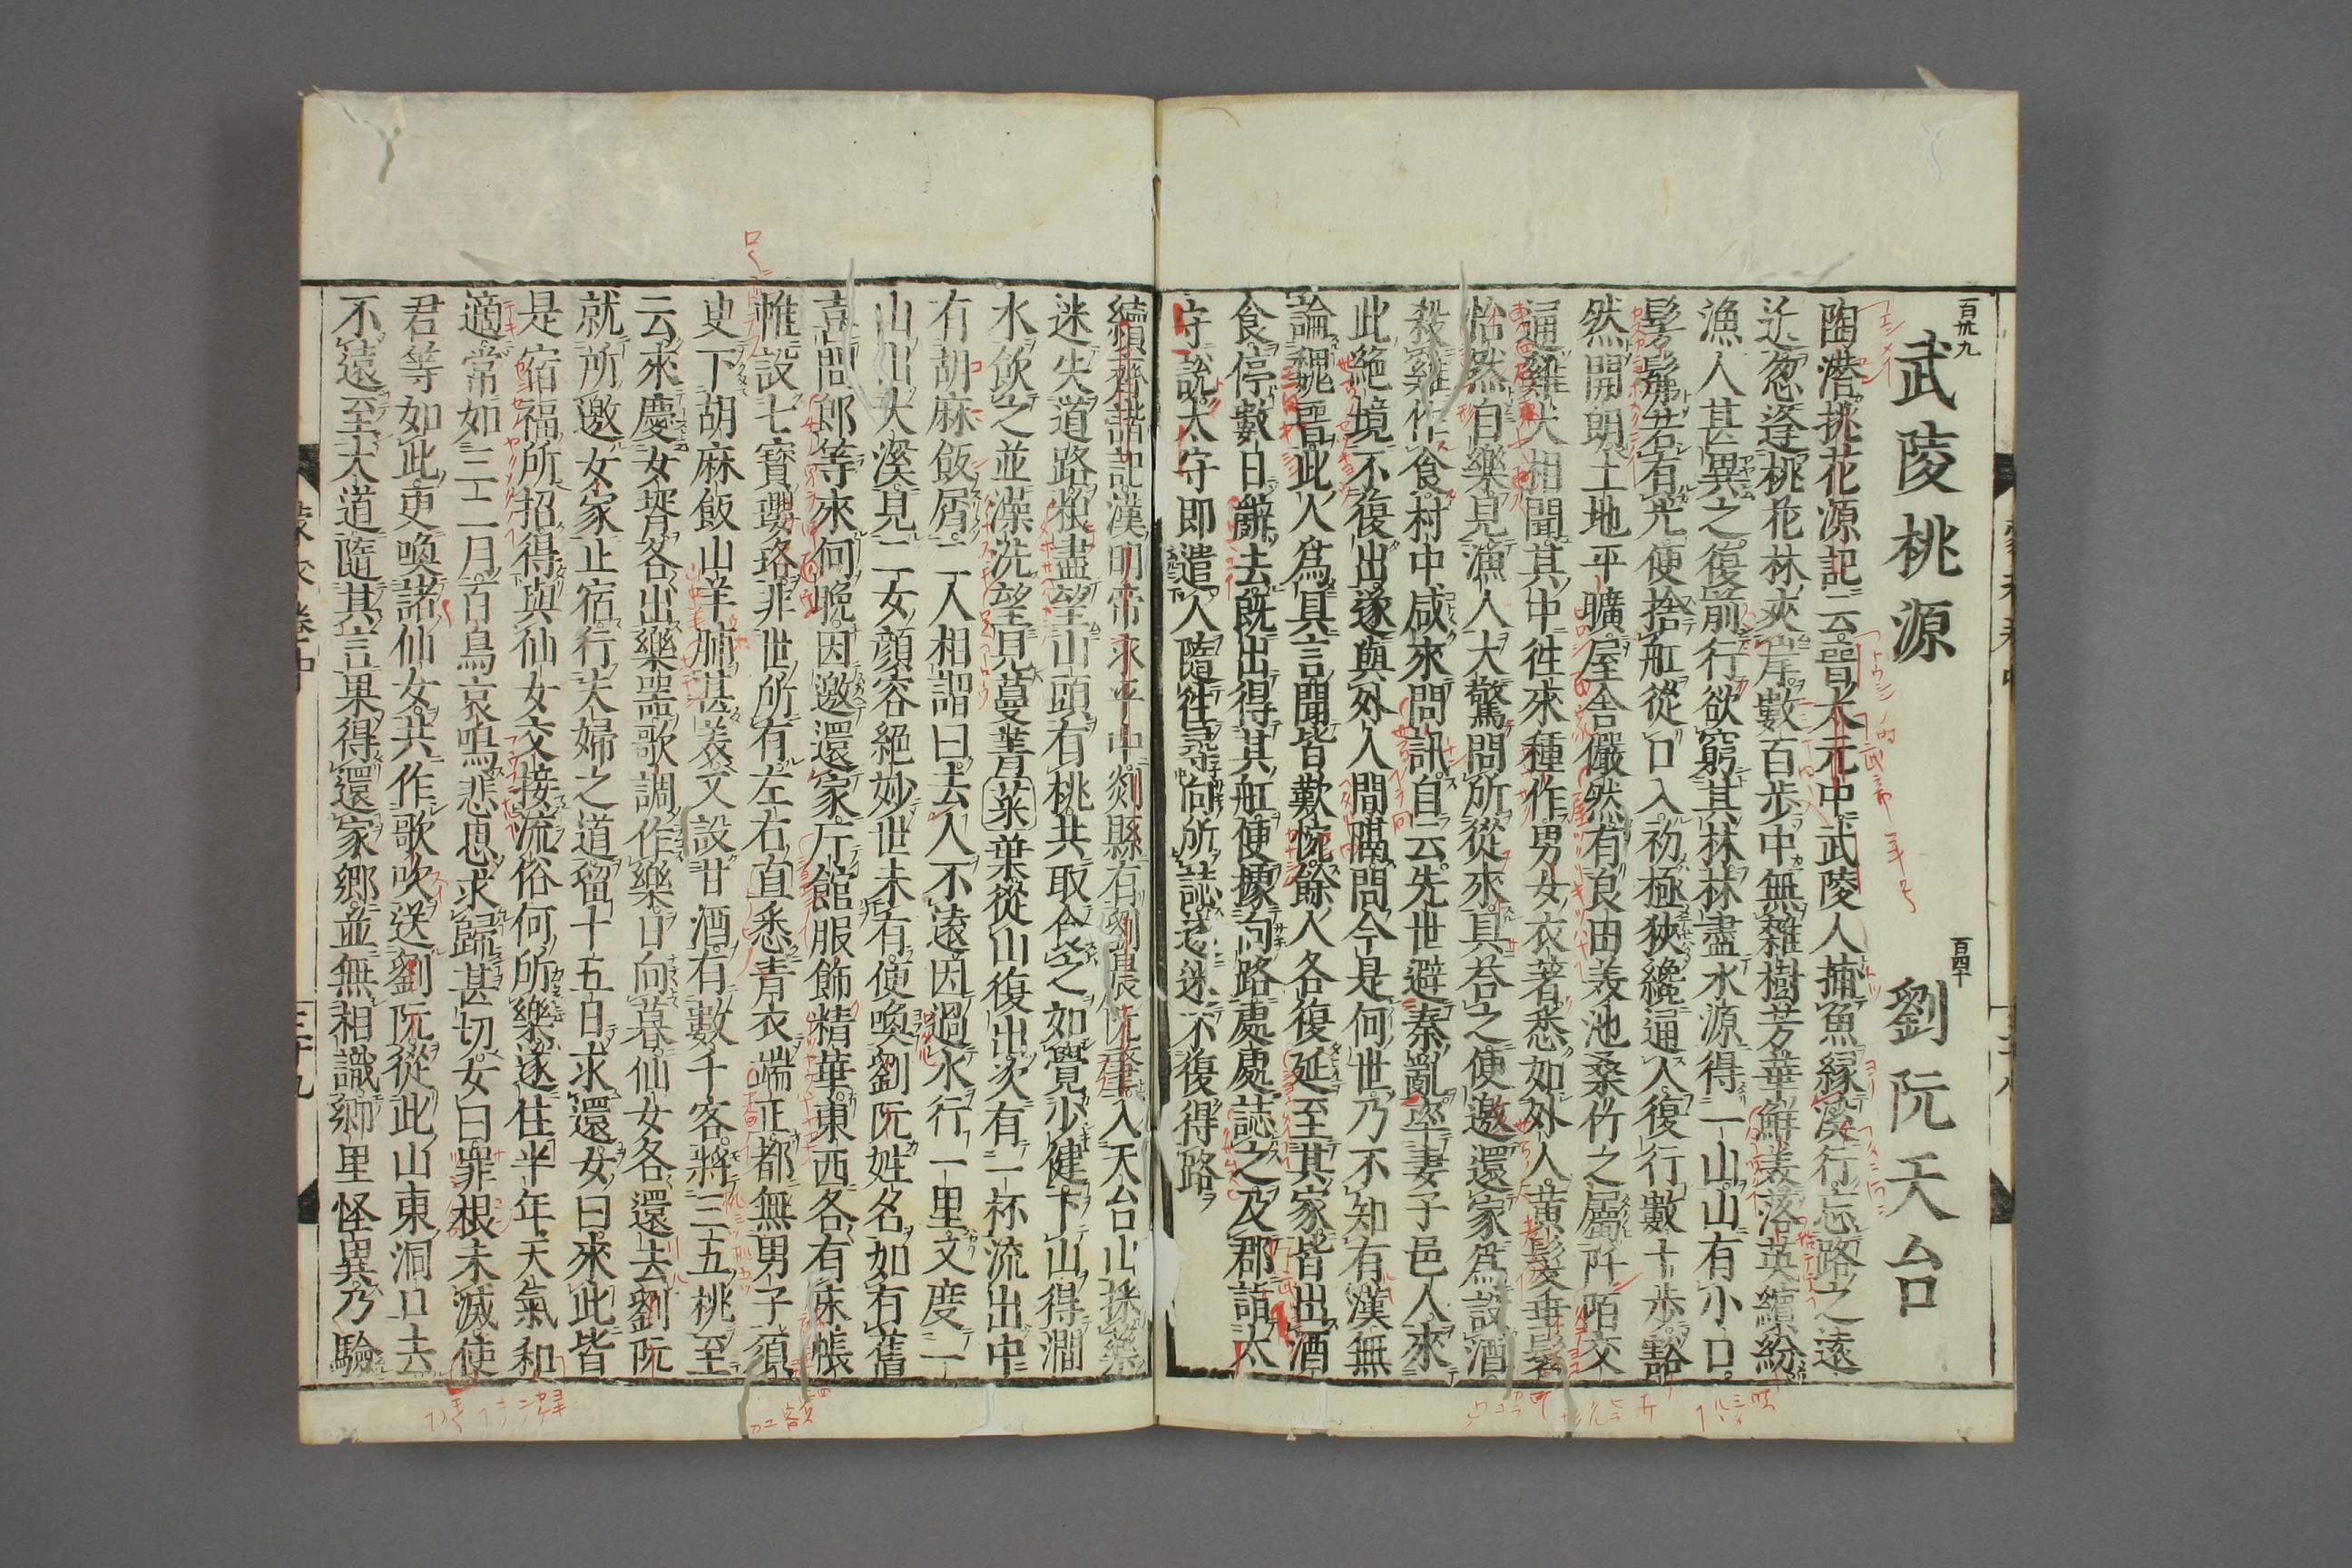 百卅九
武陵桃源
百四十
劉阮天台
陶潜桃花源記云晉太元中武陵人捕魚縁溪行忘路之遠
近忽逢桃花林夾岸數百歩中無雜樹芳華鮮美落英繽紛
漁人甚異之復前行欲窮其林林盡水源得一山山有小口
髣髴若有光便捨舡從口入初極狹纔通人復行數十歩豁
然開朗土地平曠屋舍儼然有良田美池桑竹之屬阡陌交
通雞犬相聞其中徃來種作男女衣著悉如外人黄髮垂髫
怡然自樂見漁人大驚問所從來具荅之便邀還家爲設酒
殺雞作食村中咸來問訊自云先世避秦亂率妻子邑人來
此絶境不復出遂與外人間隔問今是何世乃不知有漢無
論魏晉此人爲具言聞皆歎惋餘人各復延至其家皆出酒
食停數日辭去既出得其舡便據向路處處誌之及郡詣太
守說太守即遣人隨徃尋向所誌遂迷不復得路
續齊諧記漢明帝永平中剡縣有劉晨阮肇入天台山採藥
迷失道路粮盡望山頭有桃共取食之如覺少健下山得澗
水飲之並澡洗望見蔓菁菜葉從山復出次有一杯流出中
有胡麻飯屑二人相謂曰去人不遠因過水行一里又度一
山出大溪見二女顔容絶妙世未有便喚劉阮姓名如有舊
喜問郎等來何晩因邀還家庁館服飾精華東西各有床帳
帷設七寳瓔珞非世所有左右直悉青衣端正都無男子須
臾下胡麻飯山羊脯甚美又設甘酒有數千客將三五桃至
云來慶女壻各出樂器歌調作樂日向暮仙女各還去劉阮
就所邀女家止宿行夫婦之道留十五日求還女曰來此皆
是宿福所招得與仙女交接流俗何所樂遂住半年天氣和
適常如三二月百鳥哀鳴悲思求歸甚切女曰罪根未滅使
君等如此更喚諸仙女共作歌吹送劉阮從此山東洞口去
不遠至大道隨其言果得還家郷並無相識郷里怪異乃驗
蒙求卷中
三十九